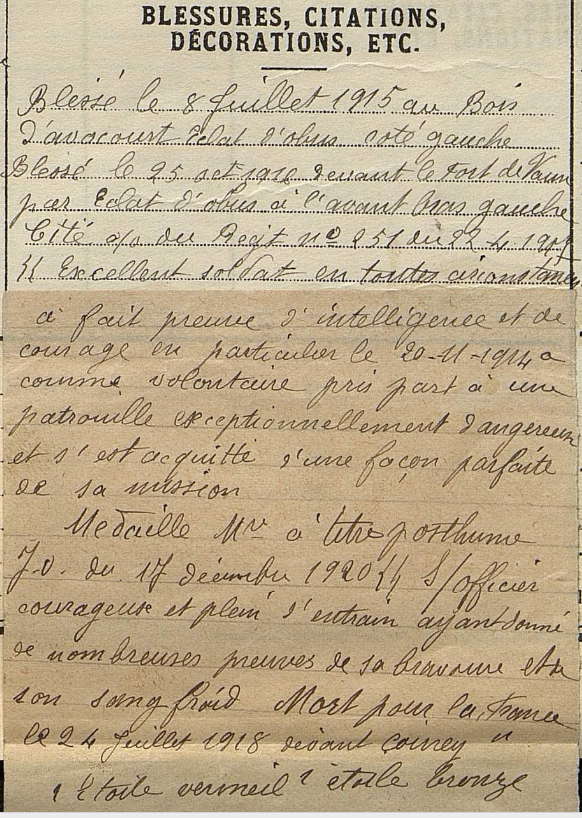 BLESSURES, CITATIONS,
DÉCORATIONS, ETC.
Blessé le 8 Juillet 1915 au Bois
d'avocourt Eclat d'obus coté gauche
Blessé le 25 oct 1916 devant le Fort de Vaux
par Eclat d'obus à l'avant bras gauche
Cité o/o du Regt no 251 du 22.4.1917
"Excellent soldat en toutes circonstances
à fait preuve d'intelligence et de
courage en particulier le 20-11-1914 a
comme volontaire pris part à une
patrouille exceptionnellement dangereuse
et s'est acquitté d'une façon parfaite
de sa mission
Medaille Mre à titre posthume
J.O. du 17 décembre 1920 " S/officier
courageux et plein d'entrain ayant donné
de nombreuses preuves de sa bravoure et de
son sang froid Mort pour la France
le 24 Juillet 1918 devant "
1 Etoile vermeil 1 étoile bronze